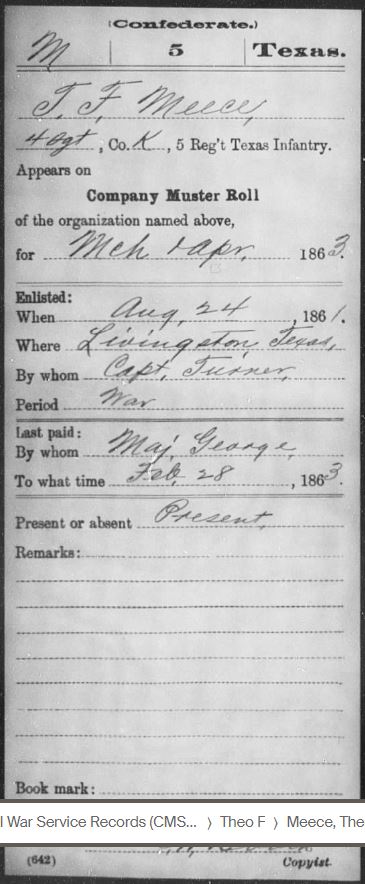 (Confederate.)
M | 5 | Texas.
T. F. Meece,
4 Sgt, Co. K, 5 Reg't Texas Infantry.
Appears on
Company Muster Roll
of the organization named above,
for Mch & Apr, 1863.
Enlisted:
When Aug, 24, 1861.
Where Livingston, Texas,
By whom Capt, Turner,
Period War
Last paid:
By whom Maj, George,
To what time Feb, 28, 1863.
Present or absent Present,
Remarks:
Book mark:
l War Service Records (CMS... 〉 Theo F 〉 Meece, The
(642) Copyist.